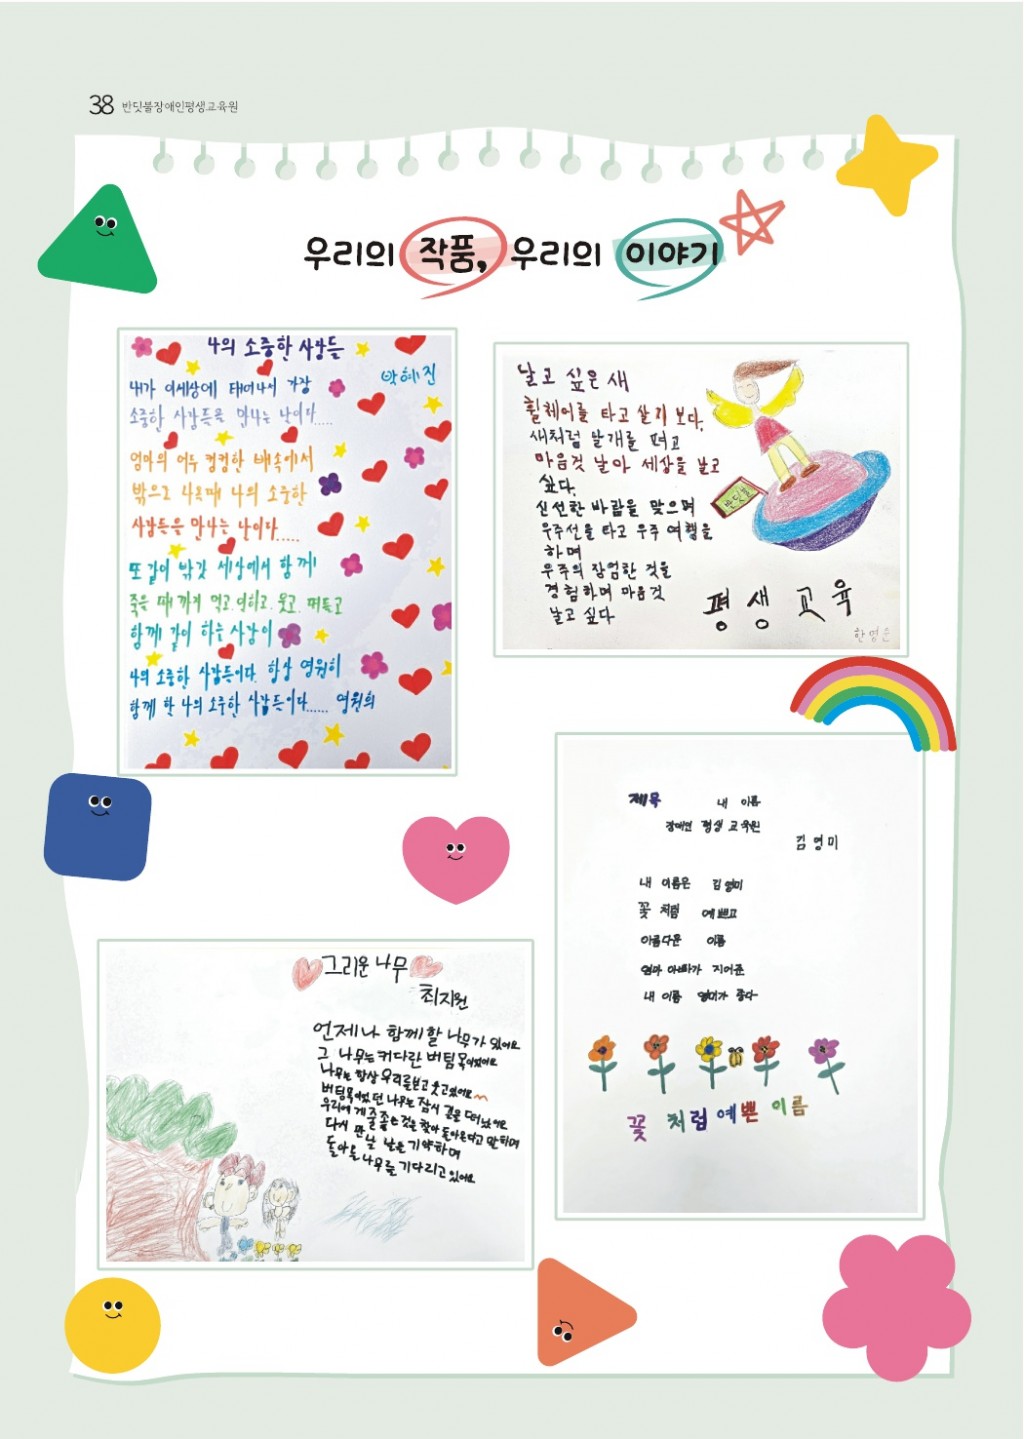 38 반딧불장애인평생교육원
우리의 작품, 우리의 이야기
나의 소중한 사람들
박혜진
내가 이세상에 태어나서 가장
소중한 사람들을 만나는 날이다.....
엄마의 어두 컴컴한 배속에서
밖으로 나올때 나의 소중한
사람들을 만나는 날이다.....
또 같이 밖같 세상에서 함께
죽을 때 까지 먹고. 웃고. 떠들고
함께 같이 하는 사람이
나의 소중한 사람들이다. 항상 영원히
함께 할 나의 소중한 사람들이다...... 영원희
날고 싶은 새
휠체어를 타고 살기 보다.
새처럼 날개를 펴고
마음껏 날아 세상을 날고
싶다.
신선한 바람을 맞으며
우주선을 타고 우주 여행을
하며
우주의 장엄한 것을
경험하며 마음껏
날고 싶다
평생교육
한영순
제목 내 이름
장애인 평생 교육원
김영미
내 이름은 김영미
꽃 처럼 예쁘고
아름다운 이름
엄마 아빠가 지어준
내 이름 영미가 좋다
꽃 처럼 예쁜 이름
그리운 나무
최지원
언제나 함께할 나무가 있어요
그 나무는 커다란 버팀목이었어요
나무는 항상 우리를보고 웃고있어요
버팀목이었던 나무는 잠시 길을 떠났어요
우리에게 줄 좋은것을 찾아 돌아온다고 말하며
다시 만날 날을 기약하며
돌아올 나무를 기다리고 있어요